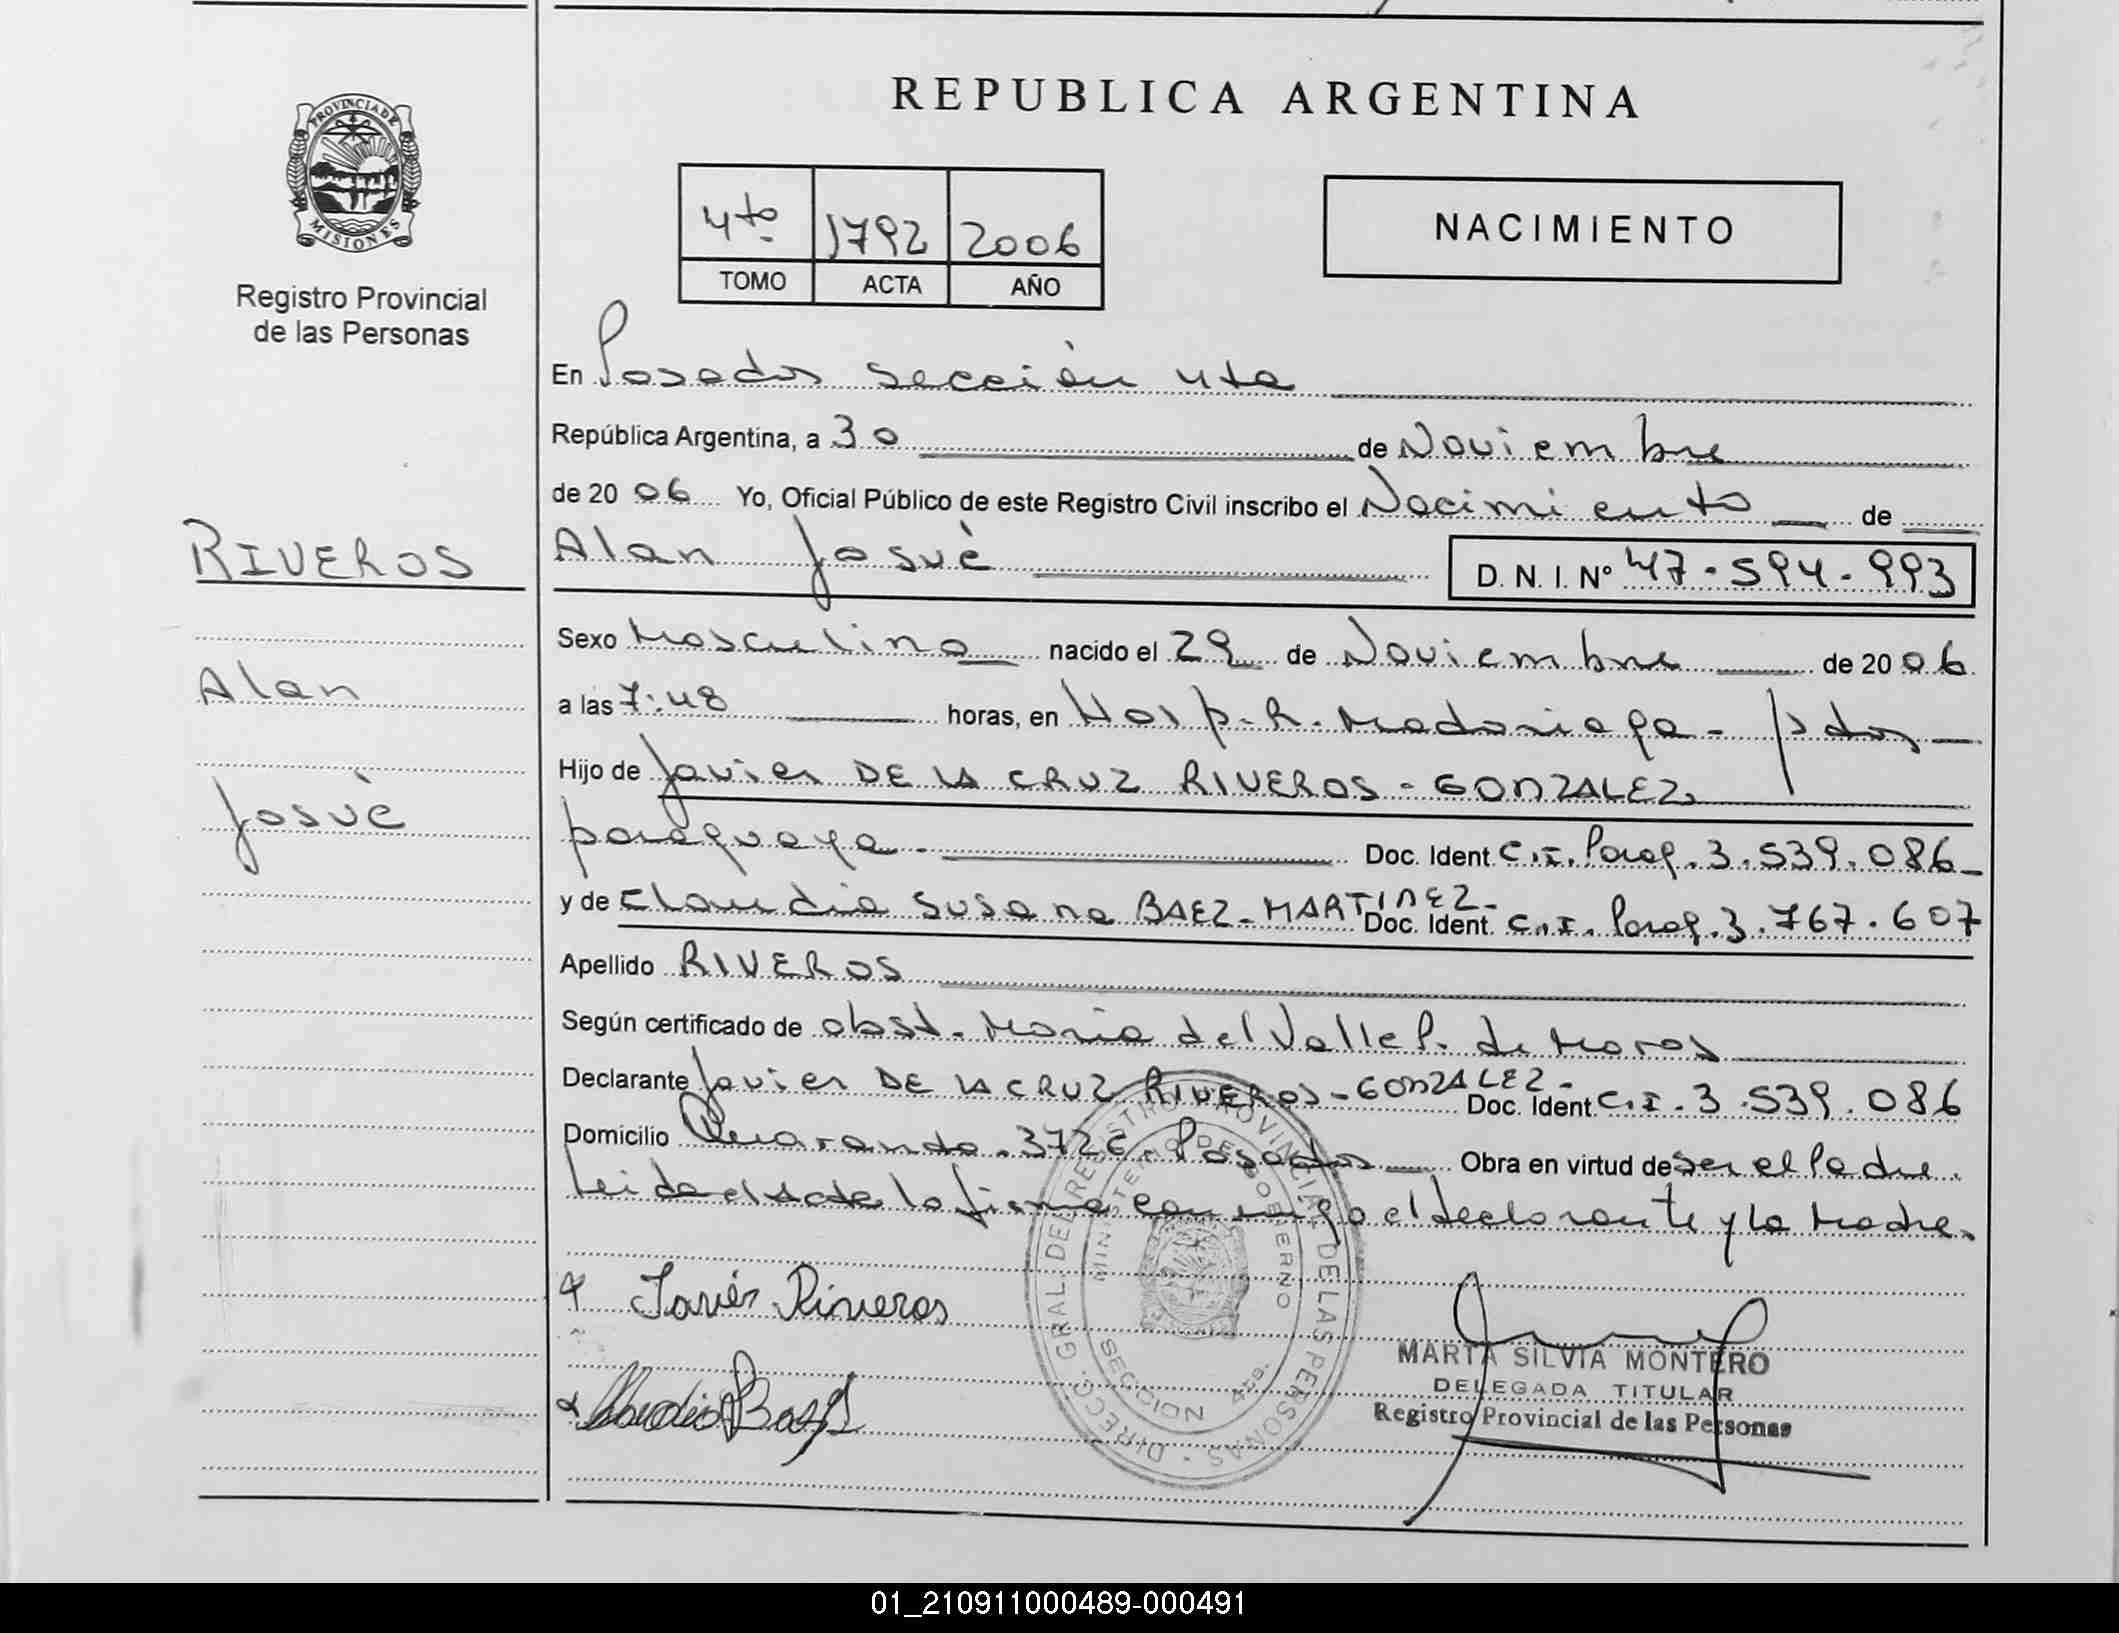 REPUBLICA ARGENTINA
PROVINCIA DE
MISIONES
Registro Provincial
de las Personas
4to 1792 2006
TOMO ACTA AÑO
NACIMIENTO
En Posadas sección 4ta
República Argentina, a 30 de Noviembre
de 2006 Yo, Oficial Público de este Registro Civil inscribo el Nacimiento de
RIVEROS
Alan Josuè D. N. I. Nº 47-594-993
Sexo Masculino nacido el 29 de Noviembre de 2006
Alan
a las 7:48 horas, en Hosp. R. Madariaga - Pdas
Hijo de Javier DE LA CRUZ RIVEROS - GONZALEZ
Josuè
paraguaya. Doc. Ident C.I. Parag. 3.539.086
y de Claudia Susana BAEZ - MARTINEZ - Doc. Ident. C.I. Parag. 3.767.607
Apellido RIVEROS
Según certificado de obst. Maria del Valle P. de
Declarante Javier DE LA CRUZ RIVEROS - GONZALEZ - Doc. Ident. C.I. 3.539.086
Domicilio 3726. Posadas Obra en virtud de ser el Padre.
Leida el Acta la firma conmigo el declarante y la Madre.
Javier Riveros
DIRECC. GRAL. DEL REGISTRO PROVINCIAL DE LAS PERSONAS
MINISTERIO DE GOBIERNO
SECCION 4ta.
MARTA SILVIA MONTERO
DELEGADA TITULAR
Registro Provincial de las Personas
01_210911000489-000491